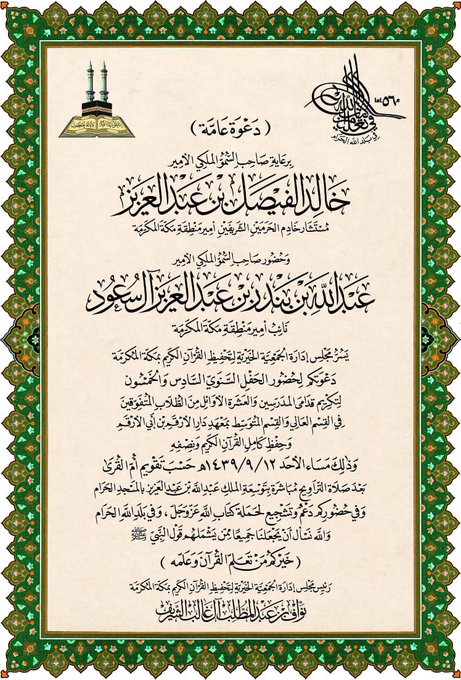 ( دَعْوَة عَامَّة )
برعاية صاحب السمو الملكي الأمير
خالد الفيصل بن عبد العزيز
مستشار خادم الحرمين الشريفين أمير منطقة مكة المكرمة
وحضور صاحب السمو الملكي الأمير
عبد الله بن بندر بن عبد العزيز آل سعود
نائب أمير منطقة مكة المكرمة
يسر مجلس إدارة الجمعية الخيرية لتحفيظ القرآن الكريم بمكة المكرمة
دعوتكم لحضور الحفل السنوي السادس والخمسون
لتكريم قدامى المدرسين والعشرة الأوائل من الطلاب المتفوقين
في القسم العالي والقسم المتوسط بمعهد دار الأرقم بن أبي الأرقم
وحفظ كامل القرآن الكريم ونصفه
وذلك مساء الأحد ١٤٣٩/٩/١٢هـ حسب تقويم أم القرى
بعد صلاة التراويح مباشرة بتوسعة الملك عبد الله بن عبد العزيز بالمسجد الحرام
وفي حضوركم دعم وتشجيع لحملة كتاب الله عز وجل ، وفي بلد الله الحرام
والله نسأل أن يجعلنا جميعًا ممن يشملهم قول النبي ﷺ
( خيركم من تعلم القرآن وعلمه )
رئيس مجلس إدارة الجمعية الخيرية لتحفيظ القرآن الكريم بمكة المكرمة
نواف بن عبد المطلب آل غالب الشريف